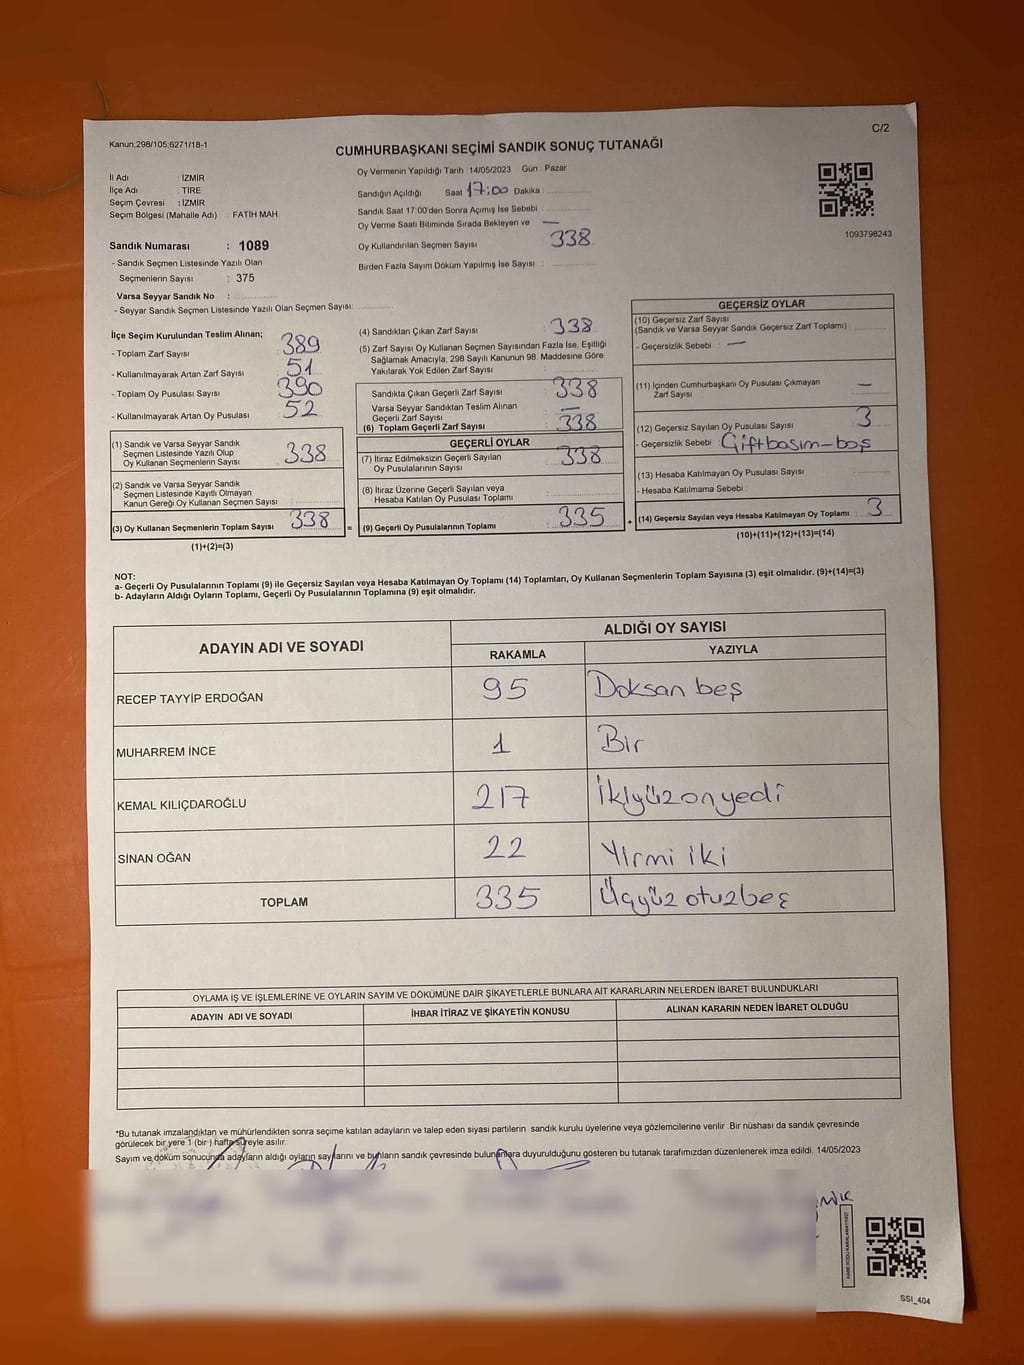 Kanun,298/105,6271/18-1
C/2
CUMHURBAŞKANI SEÇİMİ SANDIK SONUÇ TUTANAĞI
İl Adı : İZMİR
İlçe Adı : TİRE
Seçim Çevresi : İZMİR
Seçim Bölgesi (Mahalle Adı) : FATİH MAH.
Sandık Numarası : 1089
- Sandık Seçmen Listesinde Yazılı Olan
Seçmenlerin Sayısı : 375
Varsa Seyyar Sandık No :
- Seyyar Sandık Seçmen Listesinde Yazılı Olan Seçmen Sayısı:
Oy Vermenin Yapıldığı Tarih :14/05/2023 Gün : Pazar
Sandığın Açıldığı Saat 17:00 Dakika :
Sandık Saat 17:00'den Sonra Açımış İse Sebebi :
Oy Verme Saati Bitiminde Sırada Bekleyen ve —
Oy Kullandırılan Seçmen Sayısı : 338
Birden Fazla Sayım Döküm Yapılmış İse Sayısı :
1093798243
İlçe Seçim Kurulundan Teslim Alınan;
- Toplam Zarf Sayısı : 389
- Kullanılmayarak Artan Zarf Sayısı : 51
- Toplam Oy Pusulası Sayısı : 390
- Kullanılmayarak Artan Oy Pusulası : 52
(1) Sandık ve Varsa Seyyar Sandık
Seçmen Listesinde Yazılı Olup
Oy Kullanan Seçmenlerin Sayısı : 338
(2) Sandık ve Varsa Seyyar Sandık
Seçmen Listesinde Kayıtlı Olmayan
Kanun Gereği Oy Kullanan Seçmen Sayısı :
(3) Oy Kullanan Seçmenlerin Toplam Sayısı : 338 =
(1)+(2)=(3)
(4) Sandıktan Çıkan Zarf Sayısı : 338
(5) Zarf Sayısı Oy Kullanan Seçmen Sayısından Fazla İse, Eşitliği
Sağlamak Amacıyla, 298 Sayılı Kanunun 98. Maddesine Göre
Yakılarak Yok Edilen Zarf Sayısı :
Sandıkta Çıkan Geçerli Zarf Sayısı : 338
Varsa Seyyar Sandıktan Teslim Alınan
Geçerli Zarf Sayısı : —
(6) Toplam Geçerli Zarf Sayısı : 338
GEÇERLİ OYLAR
(7) İtiraz Edilmeksizin Geçerli Sayılan
Oy Pusulalarının Sayısı : 338
(8) İtiraz Üzerine Geçerli Sayılan veya
Hesaba Katılan Oy Pusulası Toplamı :
(9) Geçerli Oy Pusulalarının Toplamı : 335 +
GEÇERSİZ OYLAR
(10) Geçersiz Zarf Sayısı
(Sandık ve Varsa Seyyar Sandık Geçersiz Zarf Toplamı) :
- Geçersizlik Sebebi : —
(11) İçinden Cumhurbaşkanı Oy Pusulası Çıkmayan
Zarf Sayısı : —
(12) Geçersiz Sayılan Oy Pusulası Sayısı : 3
- Geçersizlik Sebebi : Çiftbasım-boş
(13) Hesaba Katılmayan Oy Pusulası Sayısı :
- Hesaba Katılmama Sebebi :
(14) Geçersiz Sayılan veya Hesaba Katılmayan Oy Toplamı : 3
(10)+(11)+(12)+(13)=(14)
NOT:
a- Geçerli Oy Pusulalarının Toplamı (9) ile Geçersiz Sayılan veya Hesaba Katılmayan Oy Toplamı (14) Toplamları, Oy Kullanan Seçmenlerin Toplam Sayısına (3) eşit olmalıdır. (9)+(14)=(3)
b- Adayların Aldığı Oyların Toplamı, Geçerli Oy Pusulalarının Toplamına (9) eşit olmalıdır.
ADAYIN ADI VE SOYADI
ALDIĞI OY SAYISI
RAKAMLA YAZIYLA
RECEP TAYYİP ERDOĞAN 95 Doksan beş
MUHARREM İNCE 1 Bir
KEMAL KILIÇDAROĞLU 217 İkiyüzonyedi
SİNAN OĞAN 22 Yirmi iki
TOPLAM 335 Üçyüz otuzbeş
OYLAMA İŞ VE İŞLEMLERİNE VE OYLARIN SAYIM VE DÖKÜMÜNE DAİR ŞİKAYETLERLE BUNLARA AİT KARARLARIN NELERDEN İBARET BULUNDUKLARI
ADAYIN ADI VE SOYADI İHBAR İTİRAZ VE ŞİKAYETİN KONUSU ALINAN KARARIN NEDEN İBARET OLDUĞU
*Bu tutanak imzalandıktan ve mühürlendikten sonra seçime katılan adayların ve talep eden siyasi partilerin sandık kurulu üyelerine veya gözlemcilerine verilir. Bir nüshası da sandık çevresinde
görülecek bir yere 1 (bir) hafta süreyle asılır.
Sayım ve döküm sonucunda adayların aldığı oyların sayılarını ve bunların sandık çevresinde bulunanlara duyurulduğunu gösteren bu tutanak tarafımızdan düzenlenerek imza edildi. 14/05/2023
SSI_404